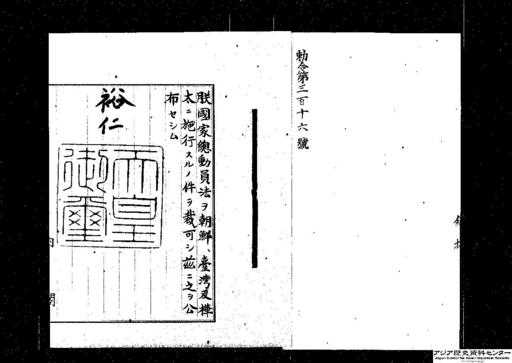 勅令第三百十六號
朕國家總動員法ヲ朝鮮、臺灣及樺
太ニ施行スルノ件ヲ裁可シ茲ニ之ヲ公
布セシム
裕仁
天皇
御璽
内
閣
アジア歴史資料センター
Japan Center for Asian Historical Records